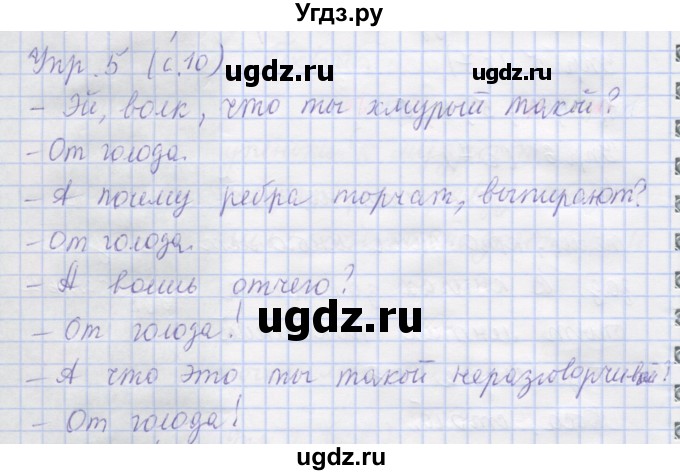 Угдз.ру
Упр. 5 (с. 10)
ugdz.ru ugdz.ru
- Эй, волк, что ты хмурый такой?
- От голода.
- А почему ребра торчат, выпирают?
- От голода.
ugdz.ru
- А воешь отчего?
- От голода!
ugdz.ru
- А что это ты такой неразговорчивый?
- От голода!
ugdz.ru